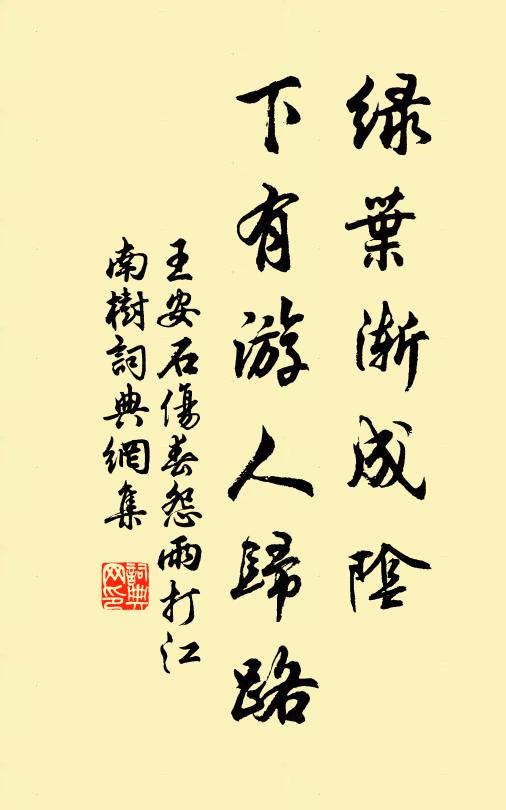 綠葉漸成陰
下有游人歸路
王安石傷春怨雨打江
南樹詞典網集
詞典
网印